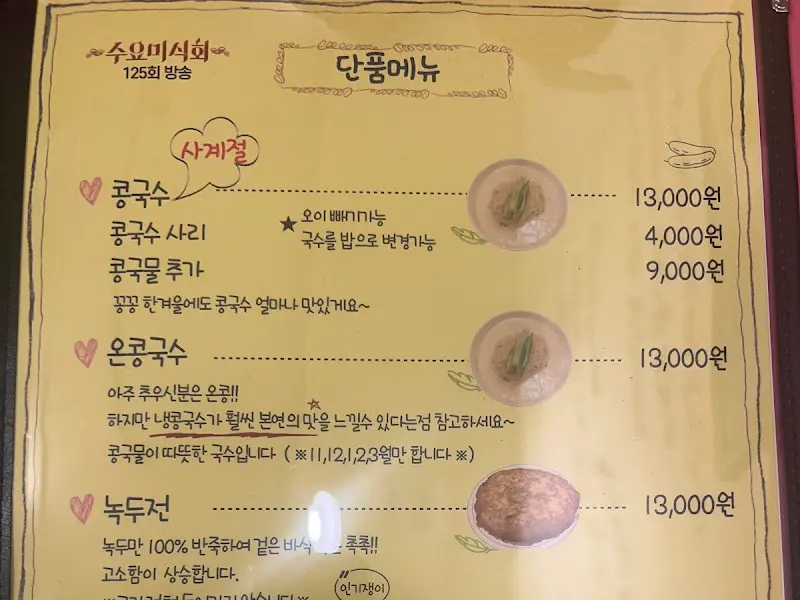 수요미식회
125회 방송
단품메뉴
사계절
콩국수 13,000원
★ 오이 빼기가능
콩국수 사리 4,000원
국수를 밥으로 변경가능
콩국물 추가 9,000원
꽁꽁 한겨울에도 콩국수 얼마나 맛있게요~
온콩국수 13,000원
아주 추우신분은 온콩!!
하지만 냉콩국수가 훨씬 본연의 맛을 느낄수 있다는점 참고하세요~
콩국물이 따뜻한 국수입니다 (※11,12,1,2,3월만 합니다※)
녹두전 13,000원
녹두만 100% 반죽하여 겉은 바삭 촉촉!!
고소함이 상승합니다.
"인기쟁이